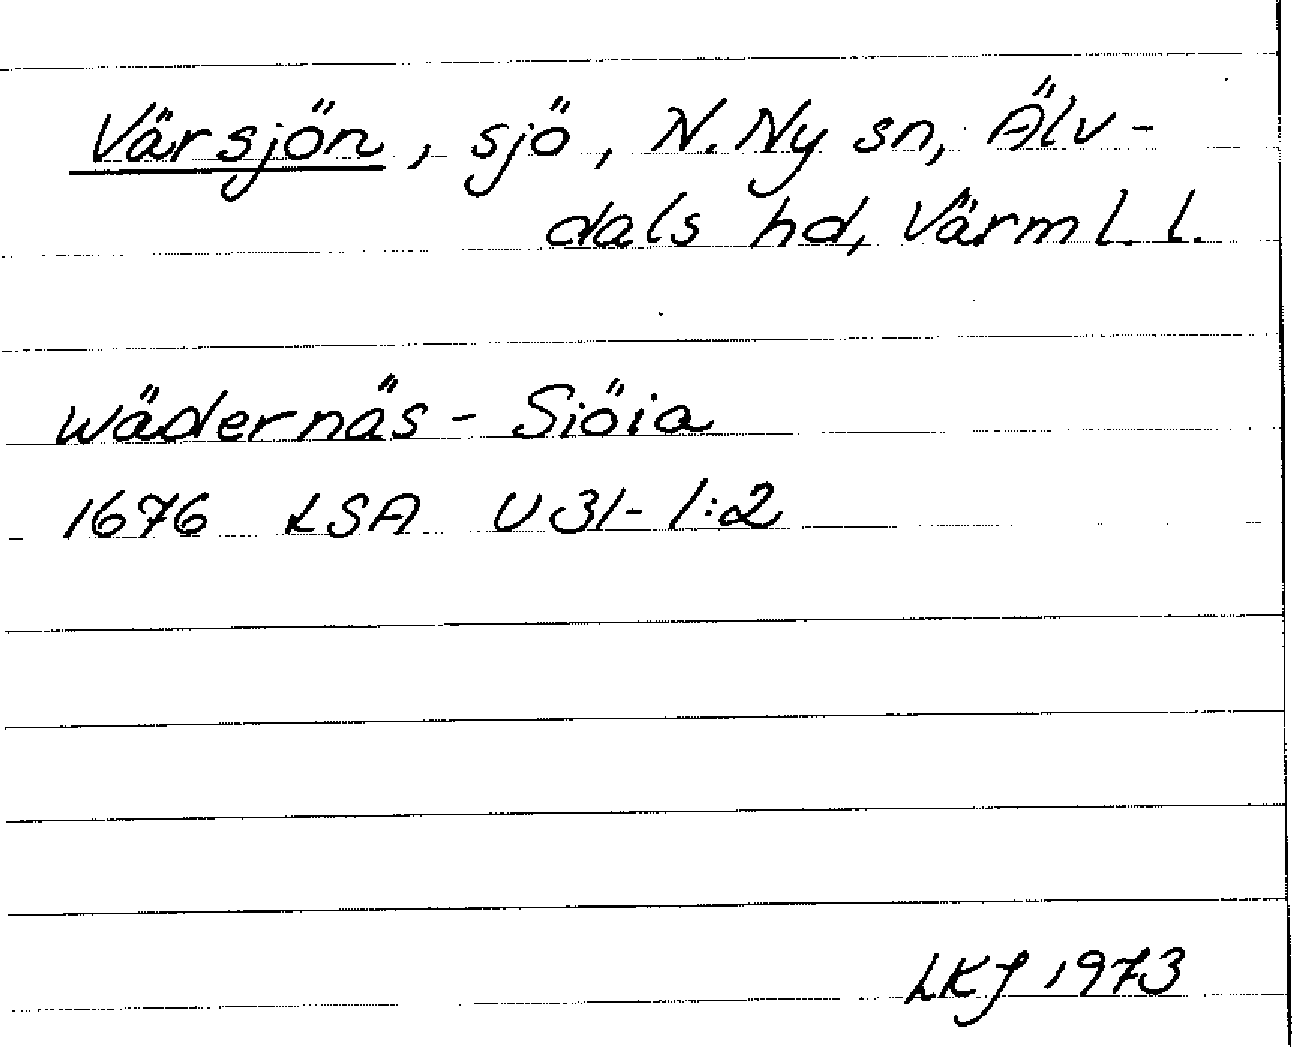 Värsjön, sjö, N. Ny sn, Älv-
dals hd, Värml. l.
wädernäs - Siöia
1676 LSA U31-1:2
LKJ 1973